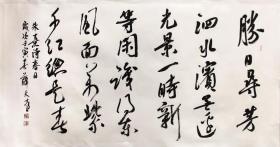 勝日尋芳
泗水濱無邊
光景一時新
等閑識得東
風面萬紫
千紅總是春
朱熹詩春日
歲次壬寅春